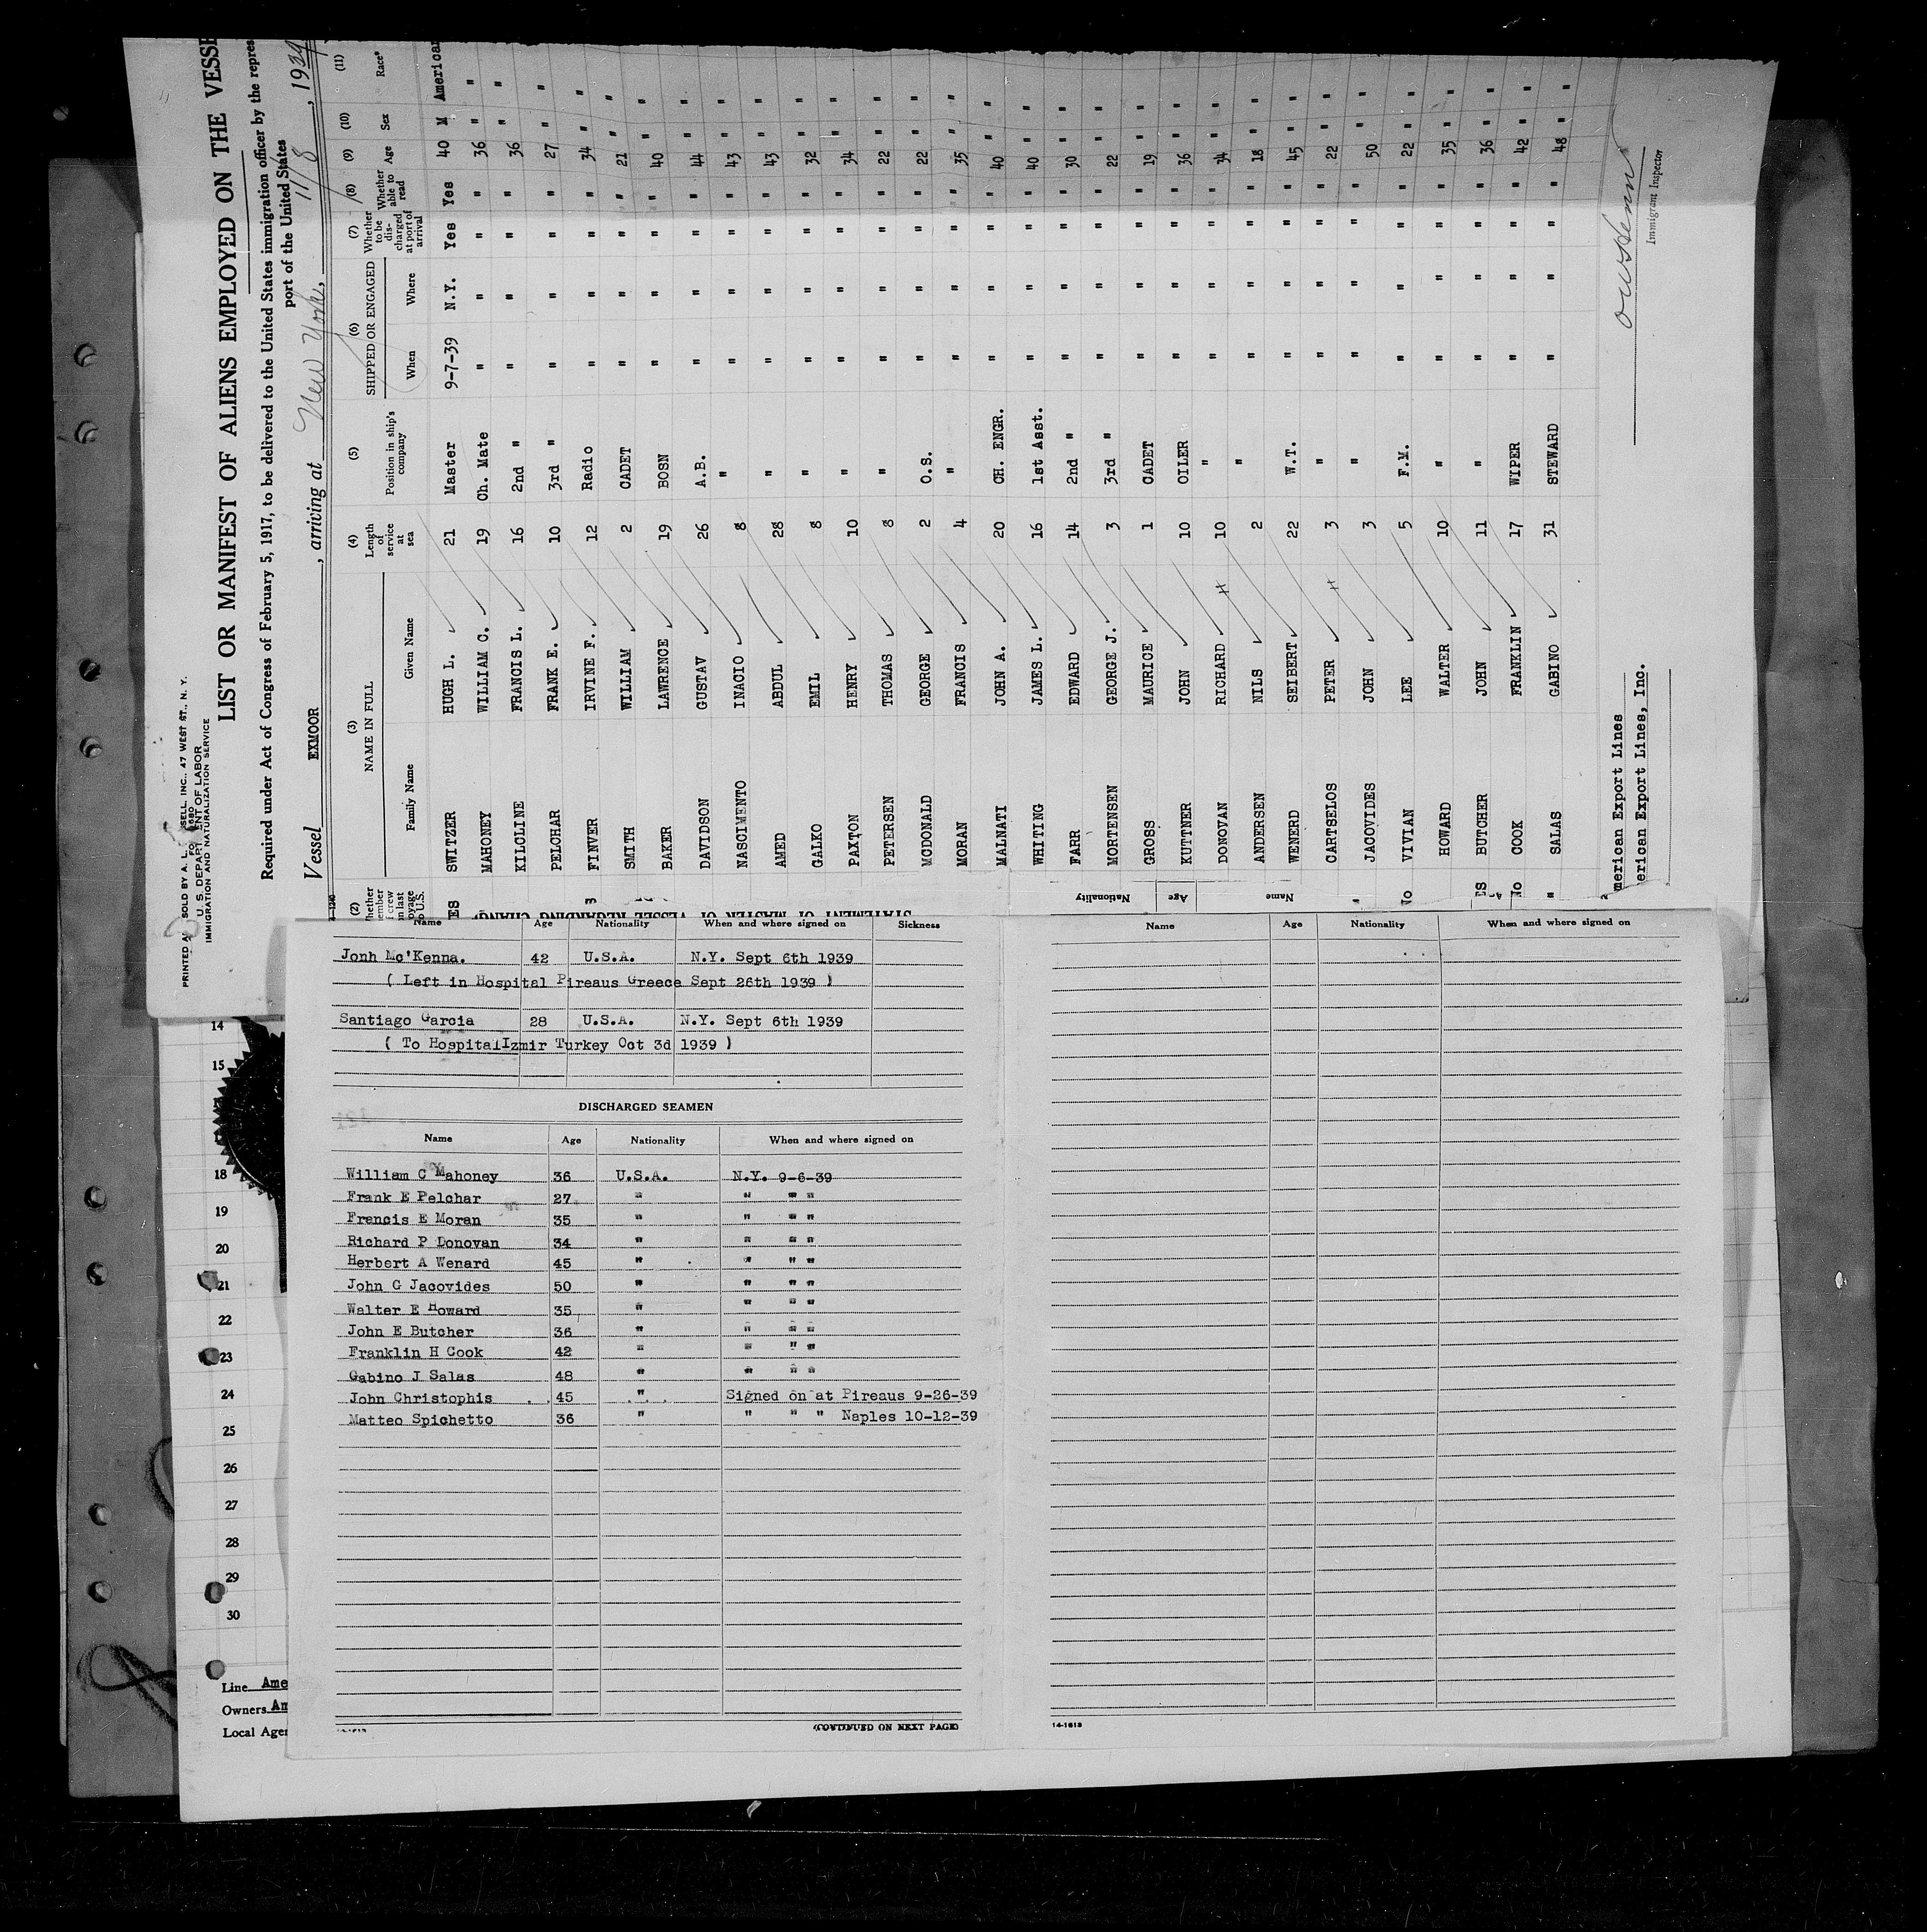 PRINTED AND SOLD BY A. L. SELL, INC., 47 WEST ST., N. Y.
U. S. DEPARTMENT OF LABOR
IMMIGRATION AND NATURALIZATION SERVICE
LIST OR MANIFEST OF ALIENS EMPLOYED ON THE VESSE
Required under Act of Congress of February 5, 1917, to be delivered to the United States immigration officer by the repres
port of the United States
Vessel EXMOOR , arriving at New York, 11/8 , 1939
(2) (3) (4) (5) (6) (7) (8) (9) (10) (11)
NAME IN FULL Length of service at sea Position in ship's company SHIPPED OR ENGAGED Whether to be discharged at port of arrival Whether able to read Age Sex Race*
Family Name Given Name When Where
SWITZER HUGH L. 21 Master 9-7-39 N.Y. Yes Yes 40 M American
MAHONEY WILLIAM C. 19 Ch. Mate " " " " 36 " "
KILCLINE FRANCIS L. 16 2nd " " " " " 36 " "
PELCHAR FRANK E. 10 3rd " " " " " 27 " "
FINVER IRVINE F. 12 Radio " " " " 34 " "
SMITH WILLIAM 2 CADET " " " " 21 " "
BAKER LAWRENCE 19 BOSN " " " " 40 " "
DAVIDSON GUSTAV 26 A.B. " " " " 44 " "
NASCIMENTO INACIO 8 " " " " " 43 " "
AMED ABDUL 28 " " " " " 43 " "
GALKO EMIL 8 " " " " " 32 " "
PAXTON HENRY 10 " " " " " 34 " "
PETERSEN THOMAS 8 " " " " " 22 " "
MCDONALD GEORGE 2 O.S. " " " " 22 " "
MORAN FRANCIS 4 " " " " " 35 " "
MALNATI JOHN A. 20 CH. ENGR. " " " " 40 " "
WHITING JAMES L. 16 1st Asst. " " " " 40 " "
FARR EDWARD 14 2nd " " " " " 30 " "
MORTENSEN GEORGE J. 3 3rd " " " " " 22 " "
GROSS MAURICE 1 CADET " " " " 19 " "
KUTTNER JOHN 10 OILER " " " " 36 " "
DONOVAN RICHARD 10 " " " " " 34 " "
ANDERSEN NILS 2 " " " " " 18 " "
WENERD SEIBERT 22 W.T. " " " " 45 " "
CARTSELOS PETER 3 " " " " " 22 " "
JACOVIDES JOHN 3 " " " " " 50 " "
VIVIAN LEE 5 F.M. " " " " 22 " "
HOWARD WALTER 10 " " " " " 35 " "
BUTCHER JOHN 11 " " " " " 36 " "
COOK FRANKLIN 17 WIPER " " " " 42 " "
SALAS GABINO 31 STEWARD " " " " 48 " "
merican Export Lines
erican Export Lines, Inc.
Immigrant Inspector
Nationality Age Name
STATEMENT OF MASTER OF VESSEL REGARDING CHANG
Name Age Nationality When and where signed on Sickness
Jonh Mc'Kenna. 42 U.S.A. N.Y. Sept 6th 1939
( Left in Hospital Pireaus Greece Sept 26th 1939 )
Santiago Garcia 28 U.S.A. N.Y. Sept 6th 1939
( To HospitalIzmir Turkey Oct 3d 1939 )
DISCHARGED SEAMEN
Name Age Nationality When and where signed on
William C Mahoney 36 U.S.A. N.Y. 9-6-39
Frank E Pelchar 27 " " " "
Francis E Moran 35 " " " "
Richard P Donovan 34 " " " "
Herbert A Wenard 45 " " " "
John G Jacovides 50 " " " "
Walter E Howard 35 " " " "
John E Butcher 36 " " " "
Franklin H Cook 42 " " " "
Gabino J Salas 48 " " " "
John Christophis 45 " Signed on at Pireaus 9-26-39
Matteo Spichetto 36 " " " " Naples 10-12-39
(CONTINUED ON NEXT PAGE)
Name Age Nationality When and where signed on
14-1613
14
15
18
19
20
21
22
23
24
25
26
27
28
29
30
Line Ame
Owners Am
Local Agen